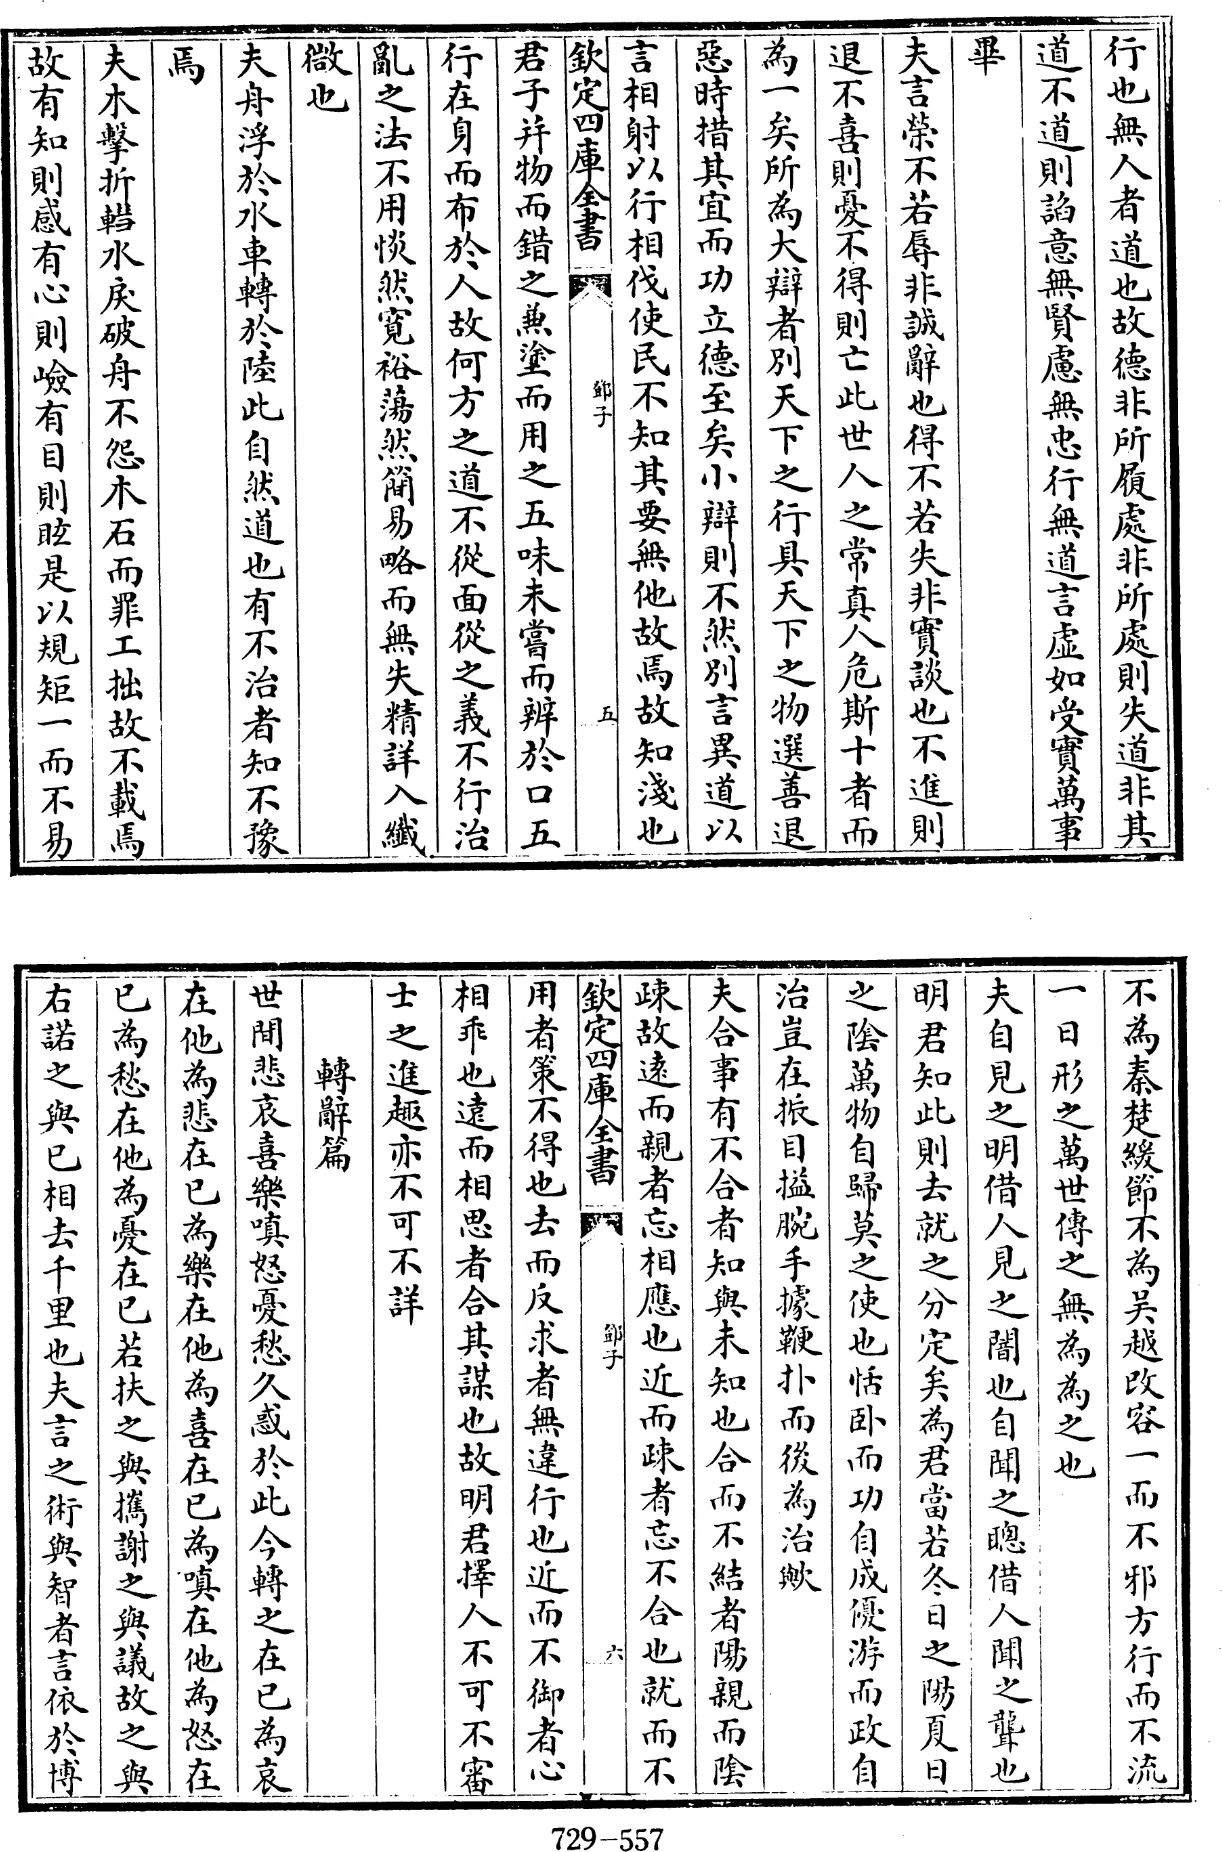 行也無人者道也故德非所履處非所處則失道非其
道不道則諂意無賢慮無忠行無道言虛如受實萬事
畢
夫言榮不若辱非誠辭也得不若失非實談也不進則
退不喜則憂不得則亡此世人之常真人危斯十者而
為一矣所為大辯者別天下之行具天下之物選善退
惡時措其宜而功立德至矣小辯則不然別言異道以
言相射以行相伐使民不知其要無他故焉故知淺也
欽定四庫全書 鄧子 五
君子并物而錯之兼塗而用之五味未嘗而辨於口五
行在身而布於人故何方之道不從面從之義不行治
亂之法不用惔然寬裕蕩然簡易略而無失精詳入纖
微也
夫舟浮於水車轉於陸此自然道也有不治者知不豫
焉
夫木擊折轊水戾破舟不怨木石而罪工拙故不載焉
故有知則惑有心則嶮有目則眩是以規矩一而不易
不為秦楚緩節不為吳越改容一而不邪方行而不流
一日形之萬世傳之無為為之也
夫自見之明借人見之闇也自聞之聰借人聞之聾也
明君知此則去就之分定矣為君當若冬日之陽夏日
之陰萬物自歸莫之使也恬卧而功自成優游而政自
治豈在振目搤腕手據鞭扑而後為治歟
夫合事有不合者知與未知也合而不結者陽親而陰
疎故遠而親者忘相應也近而疎者忘不合也就而不
欽定四庫全書 鄧子 六
用者策不得也去而反求者無違行也近而不御者心
相乖也遠而相思者合其謀也故明君擇人不可不審
士之進趣亦不可不詳
轉辭篇
世間悲哀喜樂嗔怒憂愁久惑於此今轉之在已為哀
在他為悲在已為樂在他為喜在已為嗔在他為怒在
已為愁在他為憂在已若扶之與攜謝之與議故之與
右諾之與已相去千里也夫言之術與智者言依於博
729-557